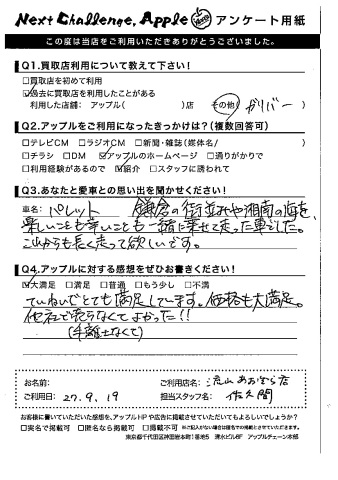 Next Challenge, Apple アンケート用紙
この度は当店をご利用いただきありがとうございました。
Q1.買取店利用について教えて下さい!
□買取店を初めて利用
☑過去に買取店を利用したことがある
利用した店舗: アップル( )店 その他( ガリバー )
Q2.アップルをご利用になったきっかけは?(複数回答可)
□テレビCM □ラジオCM □新聞・雑誌(媒体名/ )
□チラシ □DM ☑アップルのホームページ □通りがかりで
□利用経験があるので ☑紹介 □スタッフに誘われて
Q3.あなたと愛車との思い出を聞かせください!
車名: パレット 鎌倉の街並みや湘南の海を、
楽しいことも辛いことも一緒に乗せて走った車でした。
これからも長く走って欲しいです。
Q4.アップルに対する感想をぜひお書きください!
☑大満足 □満足 □普通 □もう少し □不満
ていねいでとても満足しています。価格も大満足。
他社で売らなくてよかった!!
(手離さなくて)
お名前: ご利用店名: 流山あおぞら店
ご利用日: 27.9.19 担当スタッフ名: 佐久間
お客様に書いていただいた感想を、アップルHPや広告に掲載させていただいてもよろしいでしょうか?
□実名で掲載可 □匿名なら掲載可 □掲載不可 ※ご記入がない場合は匿名での掲載とさせていただきます。
東京都千代田区神田岩本町1番地5 清水ビル6F アップルチェーン本部